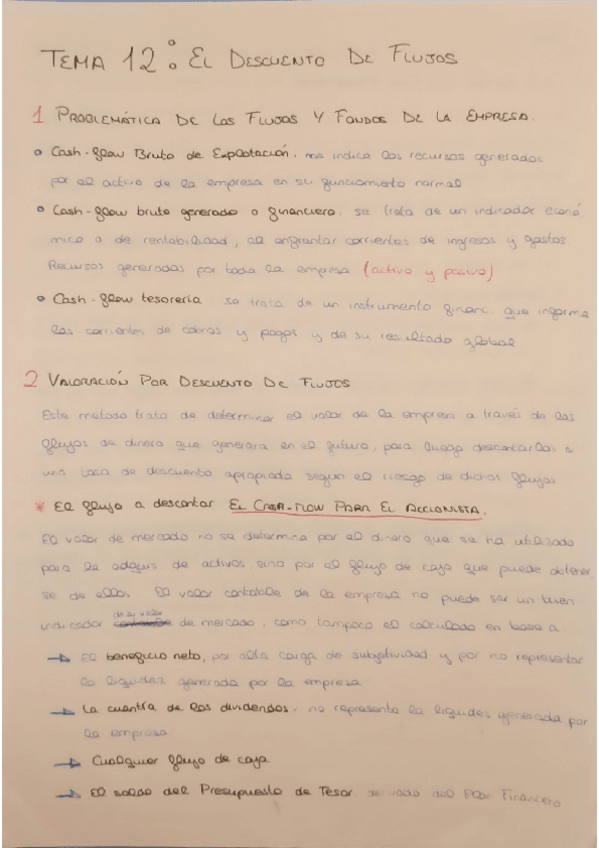 TEMA 12: EL DESCUENTO DE FLUJOS
1 PROBLEMÁTICA DE LOS FLUJOS Y FONDOS DE LA EMPRESA.
Cash-flow Bruto de Explotación. nos indica los recursos generados
por el activo de la empresa en su funcionamiento normal
Cash-flow bruto generado o financiero. se trata de un indicador econó
mico o de rentabilidad, al enfrentar corrientes de ingresos y gastos.
Recursos generados por toda la empresa (activo y pasivo)
Cash-flow tesorería se trata de un instrumento financ. que informa
las corrientes de cobros y pagos y de su resultado global
2 VALORACIÓN POR DESCUENTO DE FLUJOS
Este metodo trata de determinar el valor de la empresa a través de los
flujos de dinero que generara en el futuro, para luego descontarlos a
una tasa de descuento apropiada segun el riesgo de dichos flujos
* El flujo a descontar EL CASH-FLOW PARA EL ACCIONISTA.
El valor de mercado no se determina por el dinero que se ha utilizado
para la adquis. de activos sino por el flujo de caja que puede obtener
se de ellos. El valor contable de la empresa no puede ser un buen
indicador de su valor de mercado, como tampoco el calculado en base a
→ El beneficio neto, por alta carga de subjetividad y por no representar
la liquidez generada por la empresa
→ La cuantía de los dividendos. no representa la liquidez generada por
la empresa
→ Cualquier flujo de caja
→ El saldo del Presupuesto de Tesor. derivado del Plan Financiero